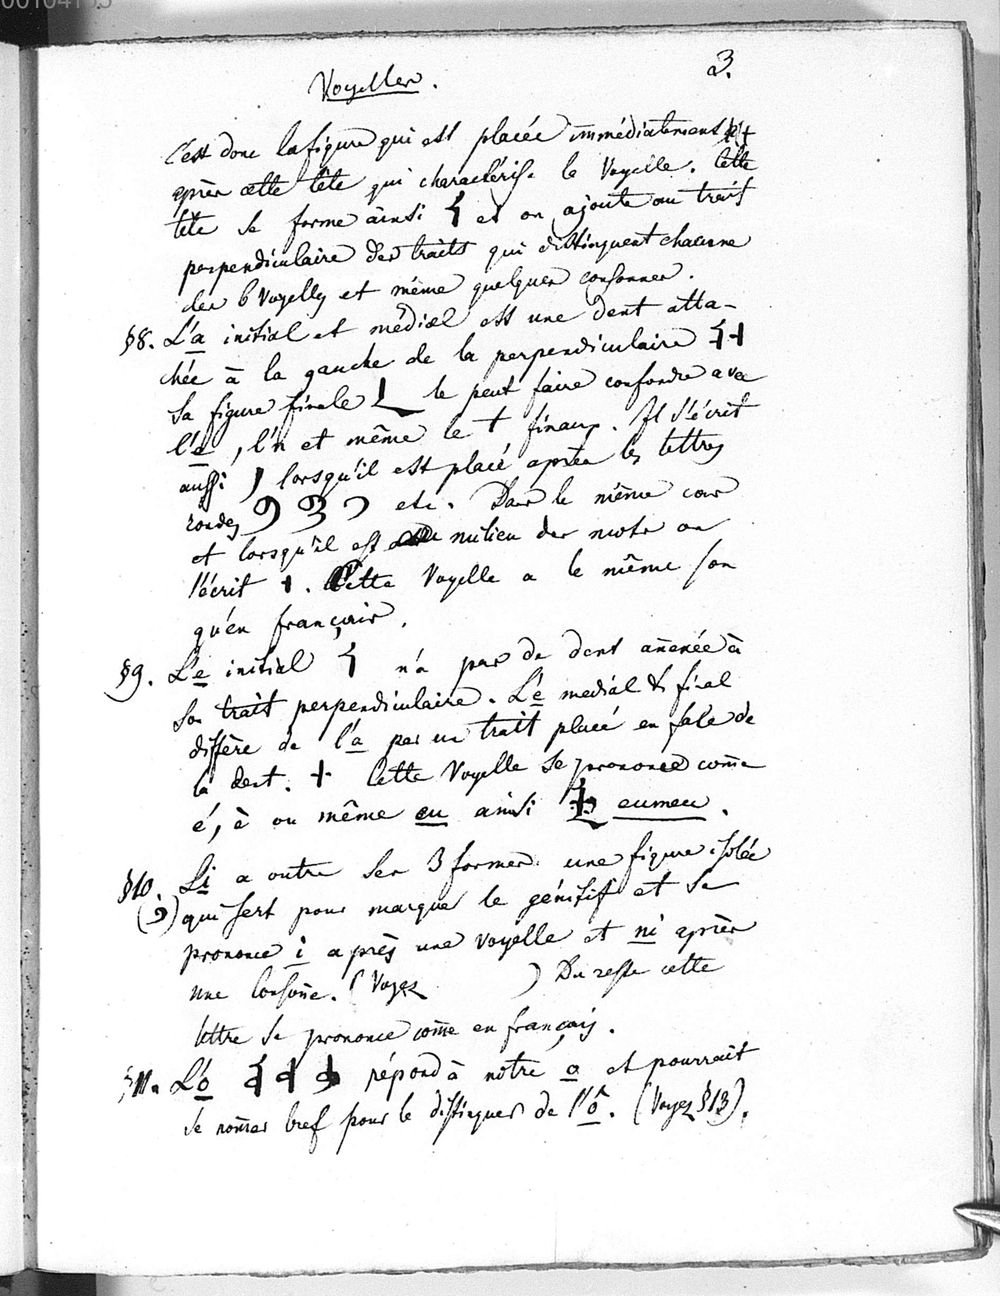 00104155
Voyelles. 3.
C'est donc la figure qui est placée immédiatement
après cette tête qui charactérise la Voyelle. Cette
tête se forme ainsi et on ajoute au trait
perpendiculaire des traits qui distinguent chacune
des 6 Voyelles et même quelques consonnes.
§8. L'a initial et médial est une dent atta-
chée à la gauche de la perpendiculaire
Sa figure finale le peut faire confondre avec
l'e, l'n et même le t finaux. Il s'écrit
aussi lorsqu'il est placé après les lettres
rondes etc. Dans le même cas
et lorsqu'il est au milieu des mots on
l'écrit . Cette Voyelle a le même son
qu'en français.
§9. L'e initial n'a pas de dent annexée à
son trait perpendiculaire. L'e medial & final
diffère de l'a par un trait placé en face de
la dent. Cette Voyelle se prononce com̄e
é, è ou même eu ainsi eumeu.
§10. L'i a outre ses 3 formes une figure isolée
( ) qui sert pour marquer le génitif et se
prononce i après une voyelle et ni après
une consoñe. (Voyez ) Du reste cette
lettre se prononce com̄e en français.
§11. L'o répond à nôtre o et pourrait
se nom̄er bref pour le distinguer de l'ô. (Voyez §13).